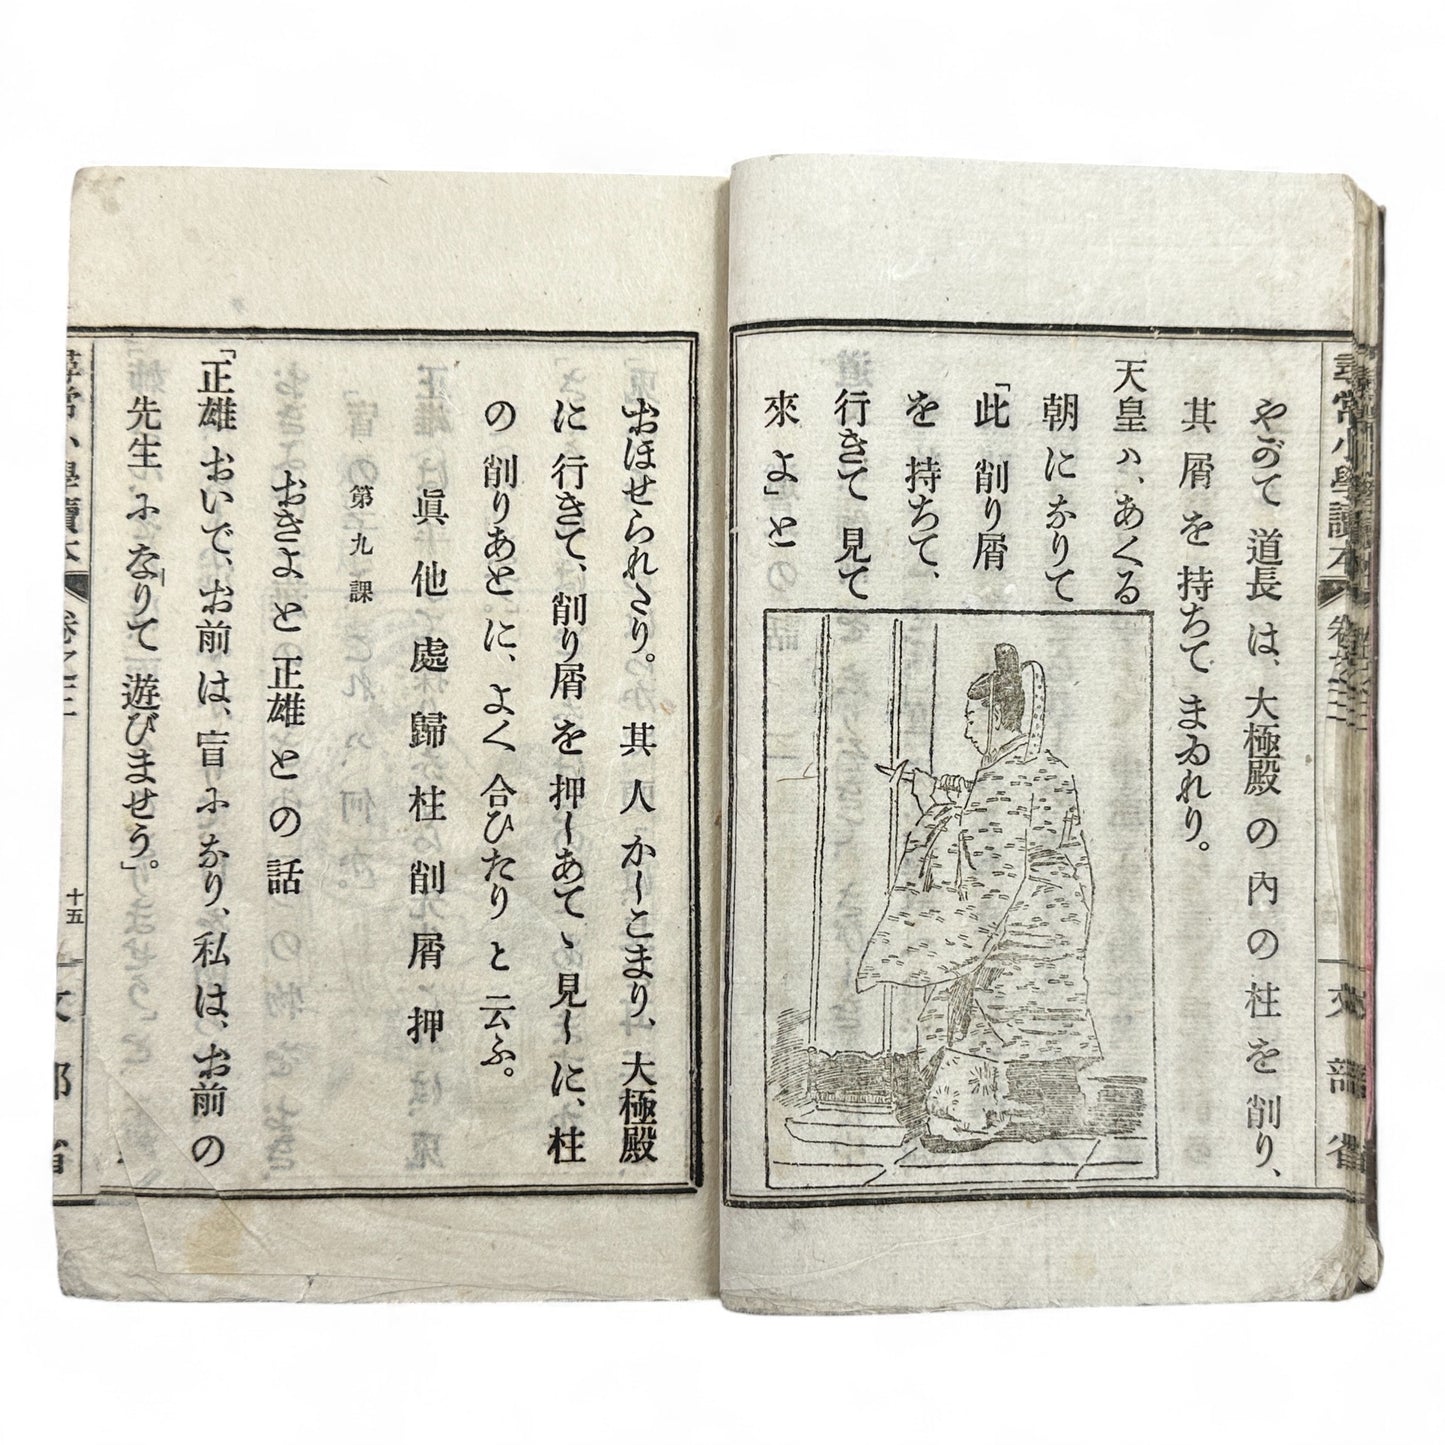 やがて道長は、大極殿の內の柱を削り、
其屑を持ちてまゐれり。
天皇ハ、あくる
朝になりて
「此削り屑
を持ちて、
行きて見て
來よ」と
おほせられたり。其人かしこまり、大極殿
に行きて、削り屑を押しあてゝ見しに、柱
の削りあとに、よく合ひたりと云ふ。
眞他處歸柱削屑押
第九課
おきよと正雄との話
「正雄おいで、お前は、盲になり、私は、お前の
先生になりて遊びませう」。
尋常小學讀本
卷之三
十五
文部省